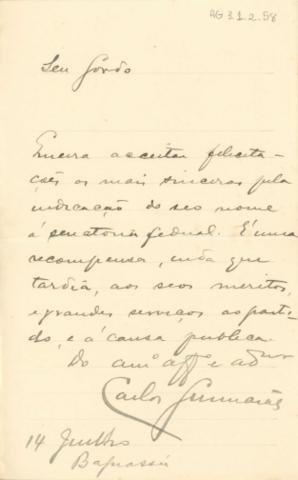 AG 3.1.2.58
Seu Gordo
Queira acceitar felicita-
ções as mais sinceras pela
indicação do seo nome
á senatoria federal. É uma
recompensa, inda que
tardia, aos seos meritos,
e grandes serviços ao parti-
do, e á causa publica.
Do amº affº e adºr
Carlos Guimarães
14 Junho